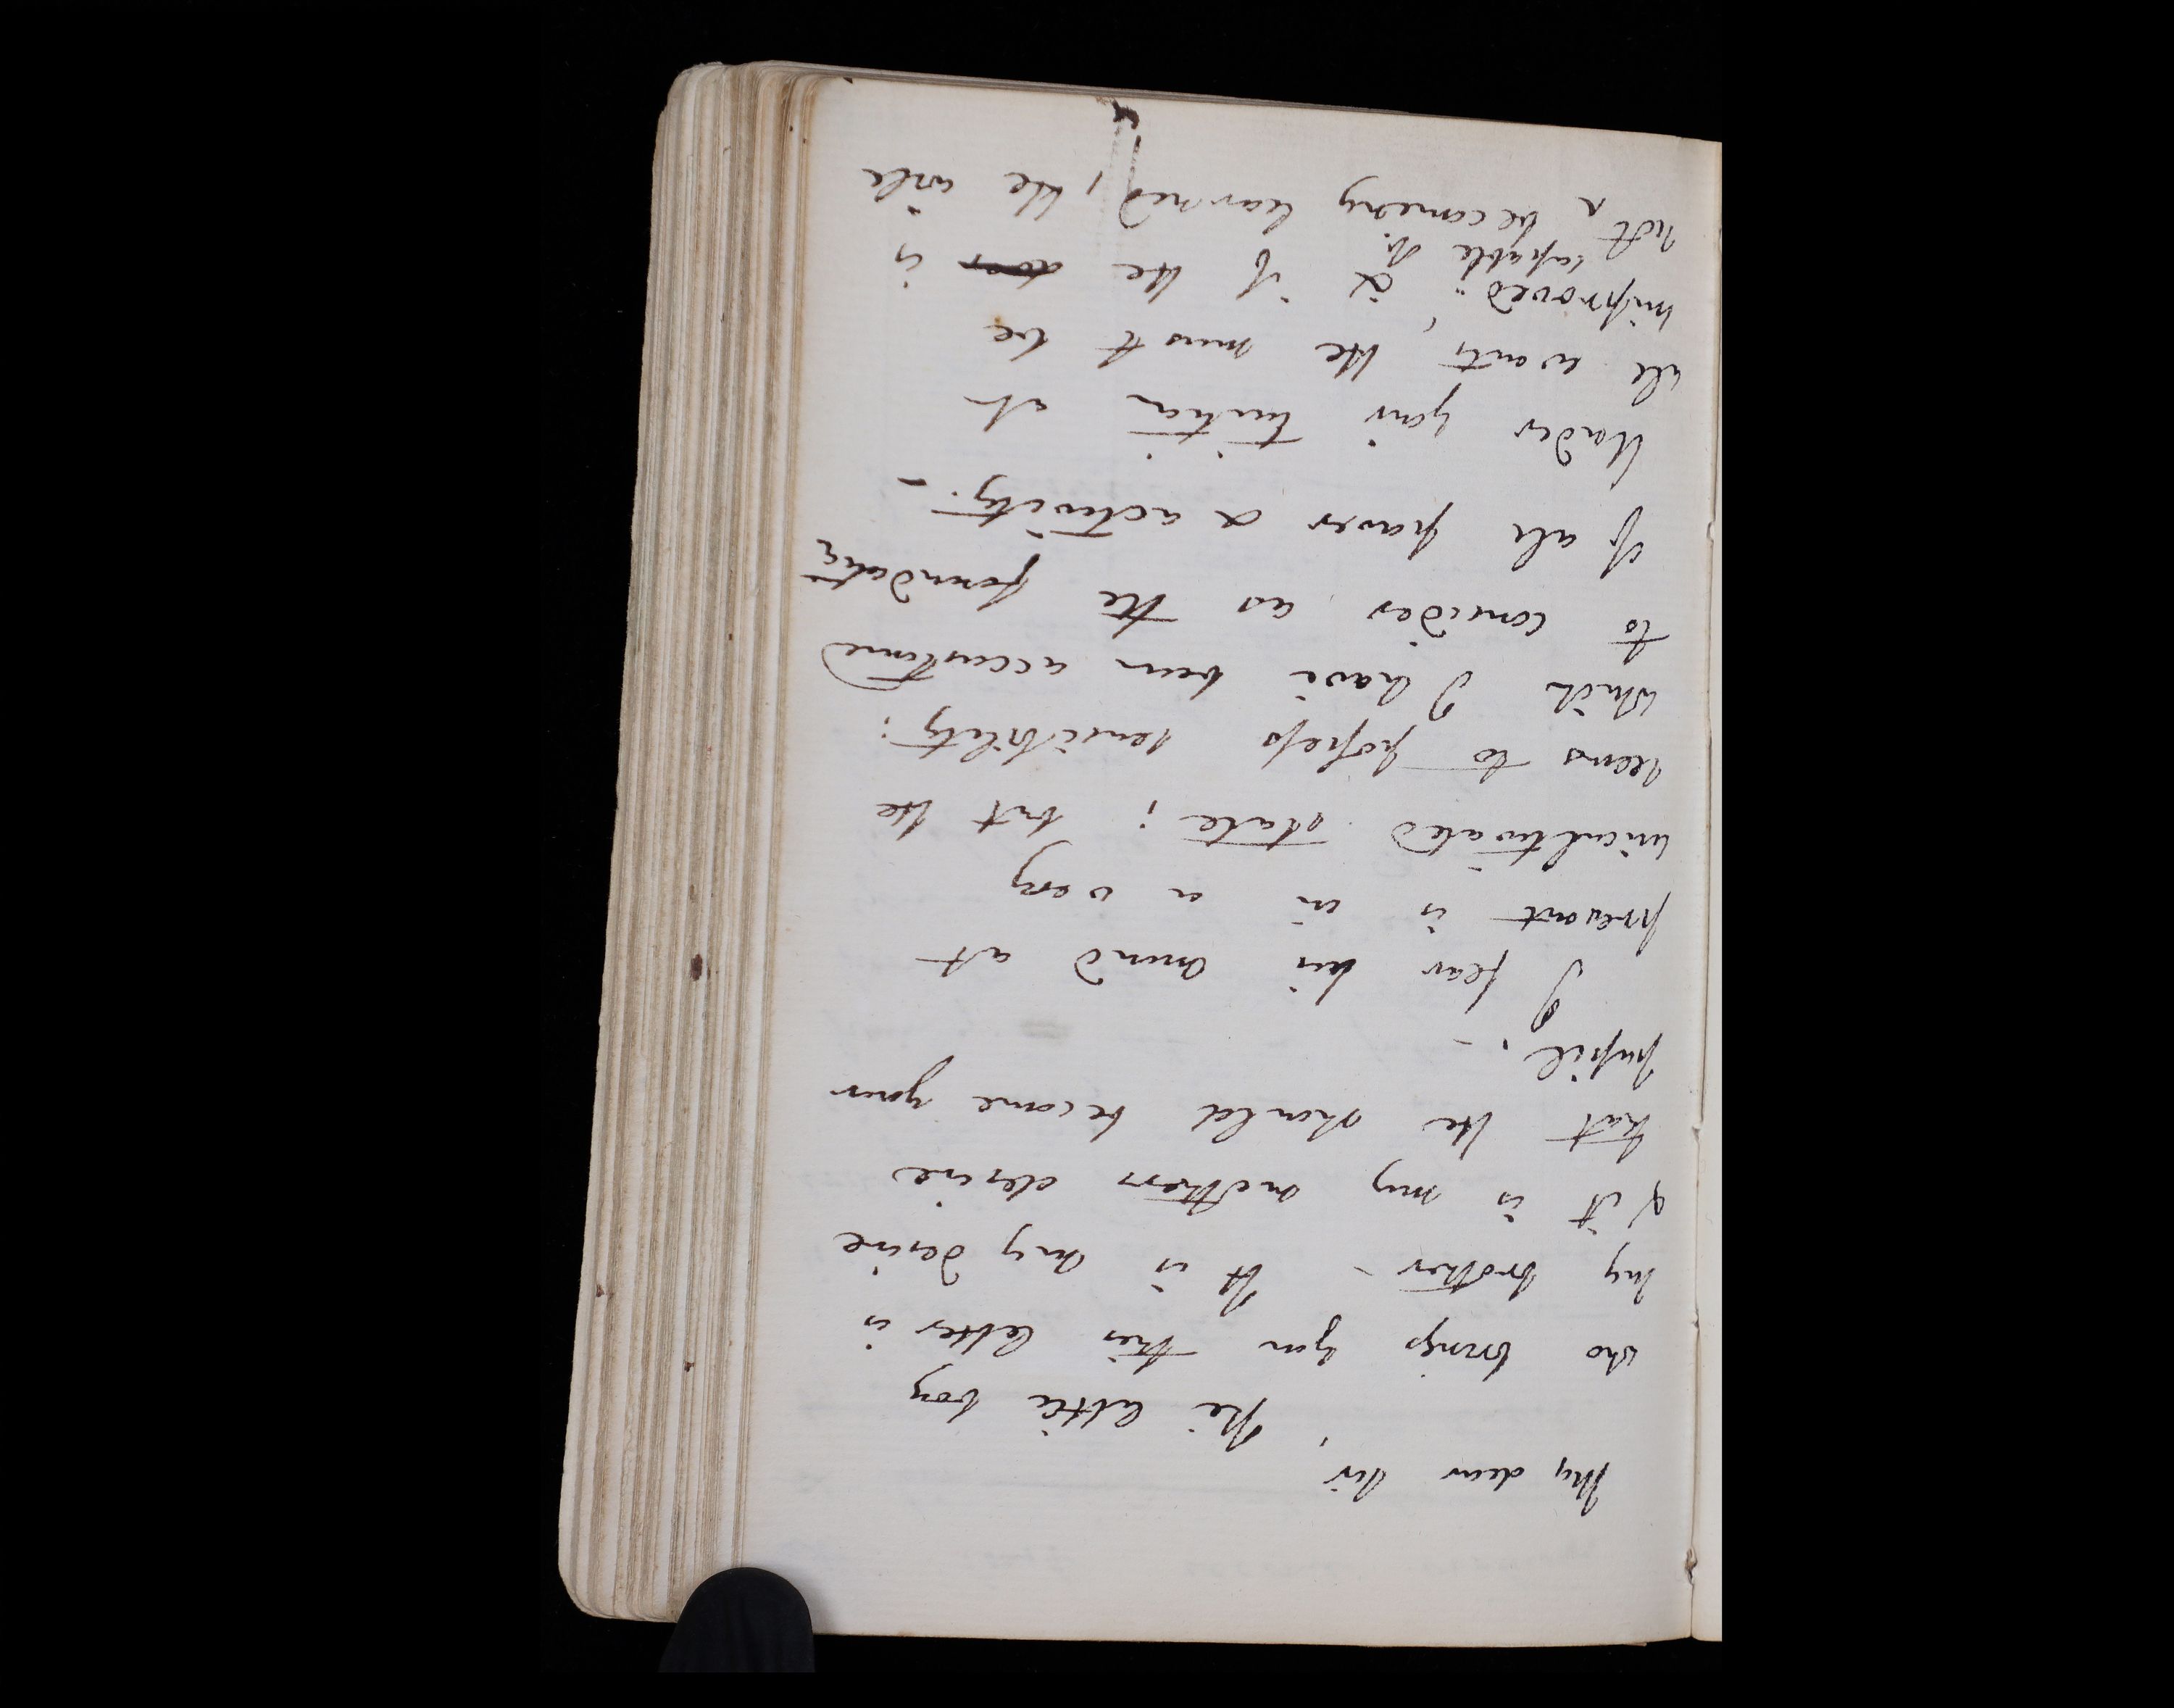 My dear Sir
The little boy
who brings you this letter is
my brother - It is my desire
& it is my mothers desire
that He should become your
pupil; -
I fear his mind at
present is in a very
uncultivated state; but He
seems to possess sensibility;
which I have been accustomed
to consider as the foundatin
of all power & activity. -
Under your tuition at
all events, He must be
improved; & if He does is
capable of
not becoming learned, He will